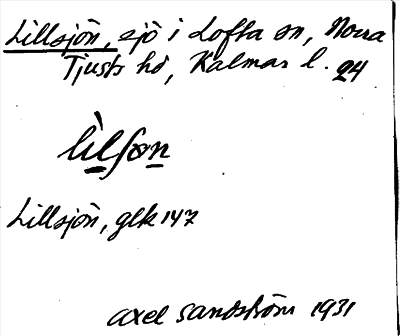 Lillsjön, sjö i Lofta sn, Norra
Tjusts hd, Kalmar l. 24
Lillsjön, glk 147
Axel Sandström 1931